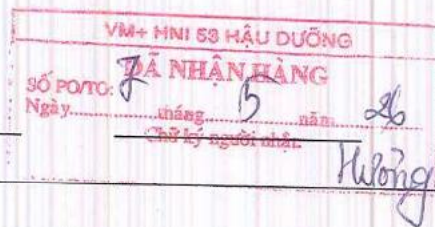 VM+ HNI 53 HẬU DƯỠNG
ĐÃ NHẬN HÀNG
SỐ PO/TO:
Ngày 7 tháng 5 năm 26
Chữ ký người nhận
Hưởng